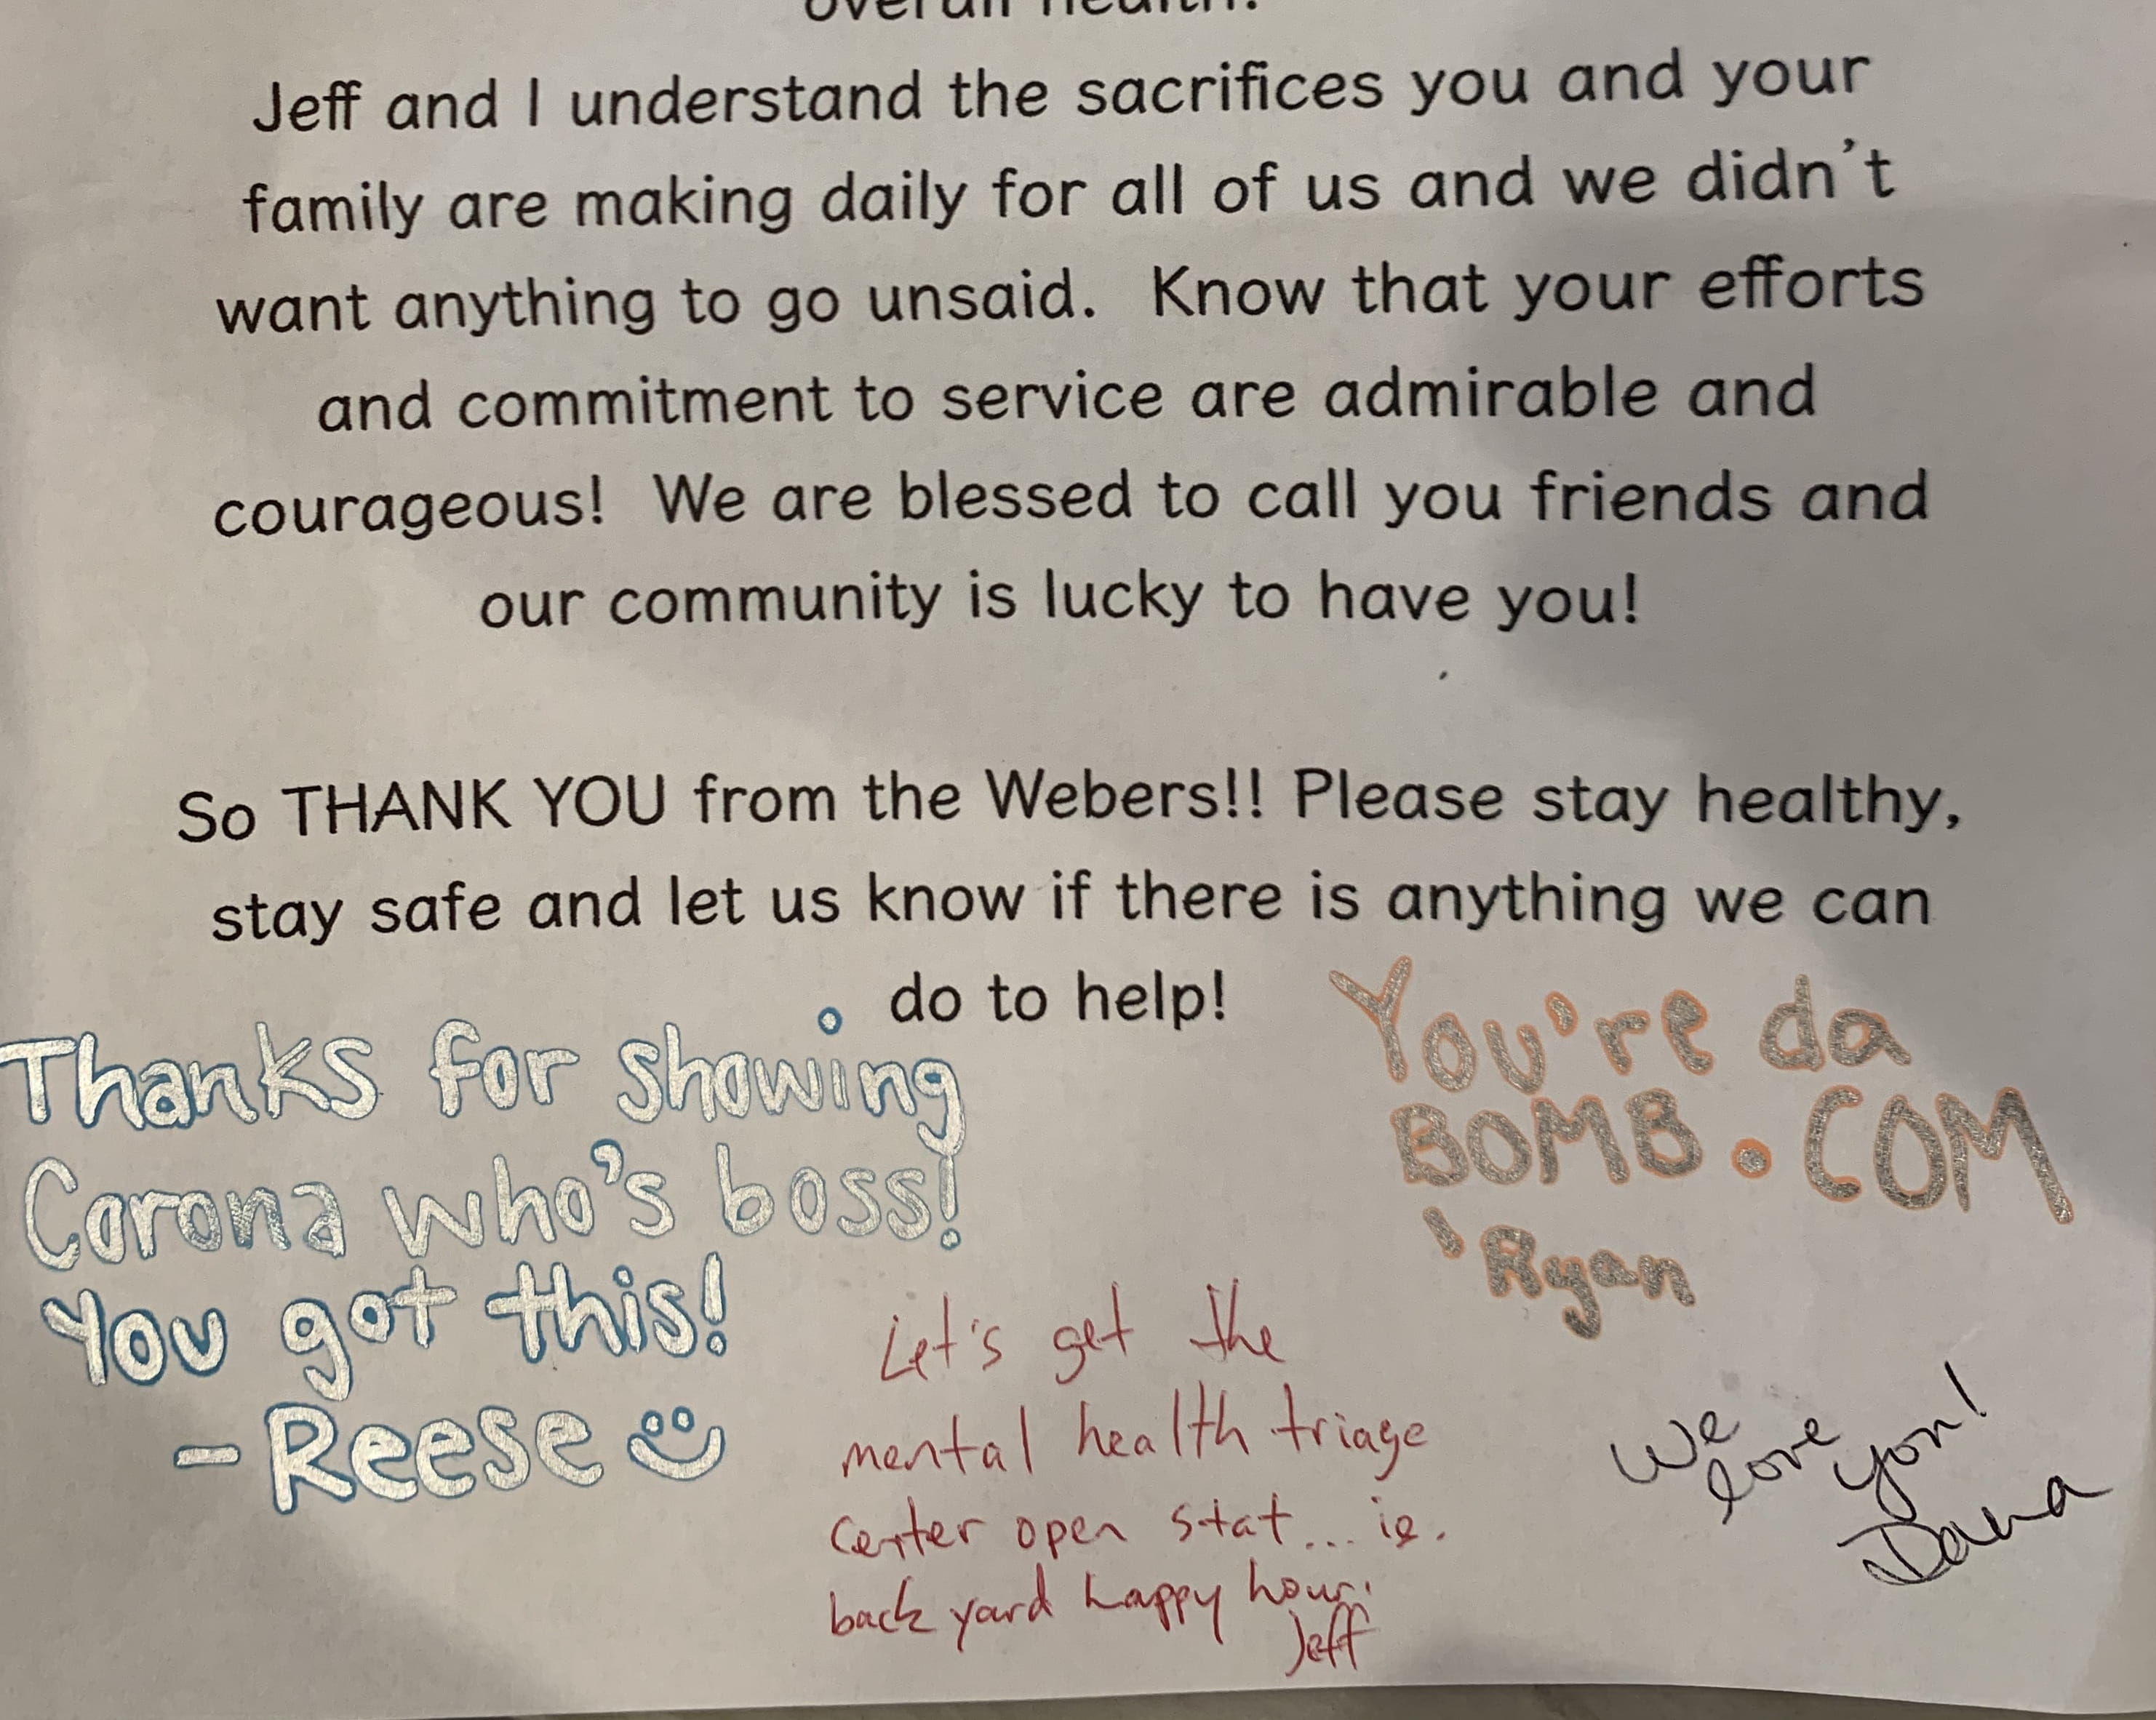 overall health!
Jeff and I understand the sacrifices you and your
family are making daily for all of us and we didn't
want anything to go unsaid.  Know that your efforts
and commitment to service are admirable and
courageous!  We are blessed to call you friends and
our community is lucky to have you!
So THANK YOU from the Webers!! Please stay healthy,
stay safe and let us know if there is anything we can
do to help!
Thanks for showing
Corona who's boss!
You got this!
- Reese
You're da
BOMB.COM
'Ryan
Let's get the
mental health triage
center open stat... ie.
back yard happy hour.
Jeff
We
love
you!
Dana